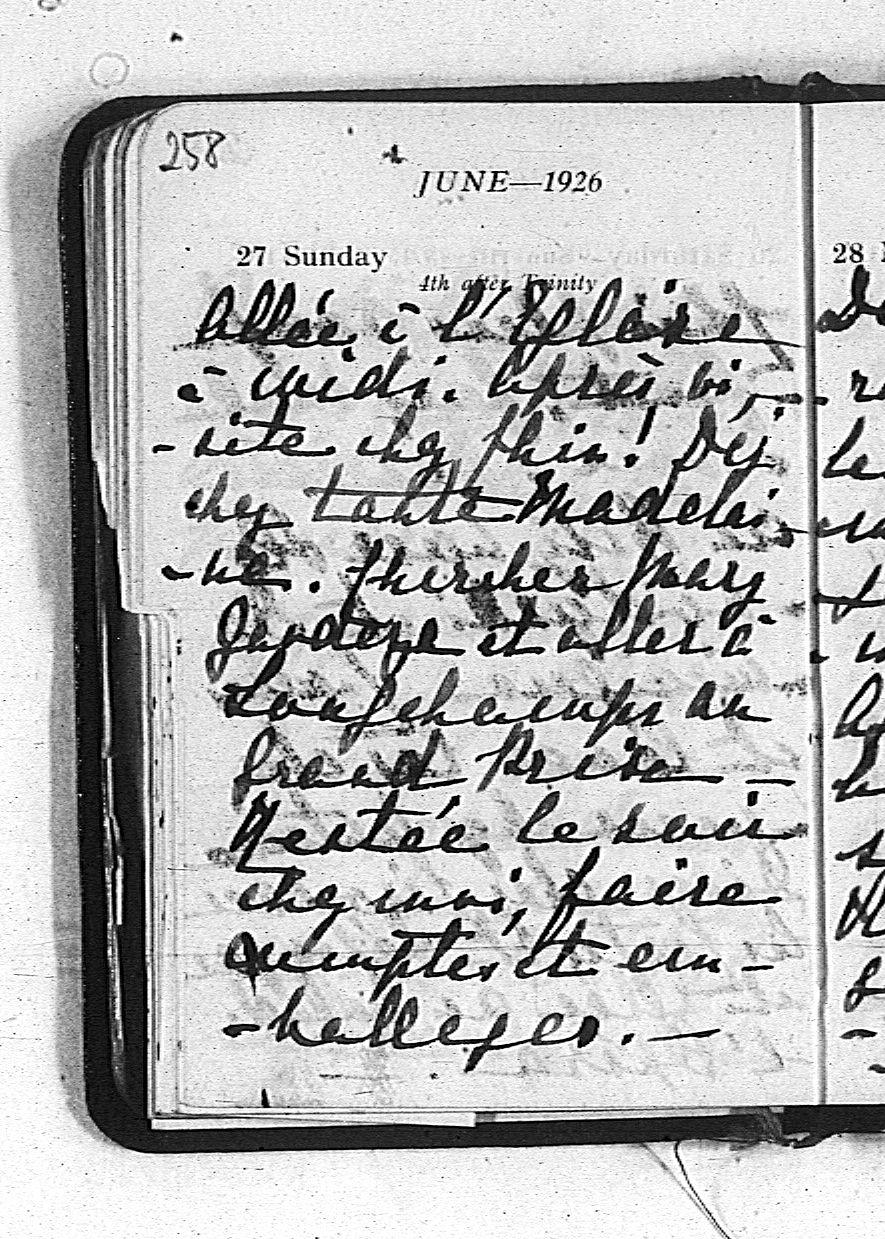 258
JUNE—1926
27 Sunday
4th after Trinity
Allée à l'Eglise
à midi. Après, vi-
-site chez Phin! Déj
chez tante Madelei-
-ne. Chercher Mary
et aller à
Longchamps au
Grand Prix —
Restée le soir
chez moi, faire
comptes et em-
-balleger. —
28